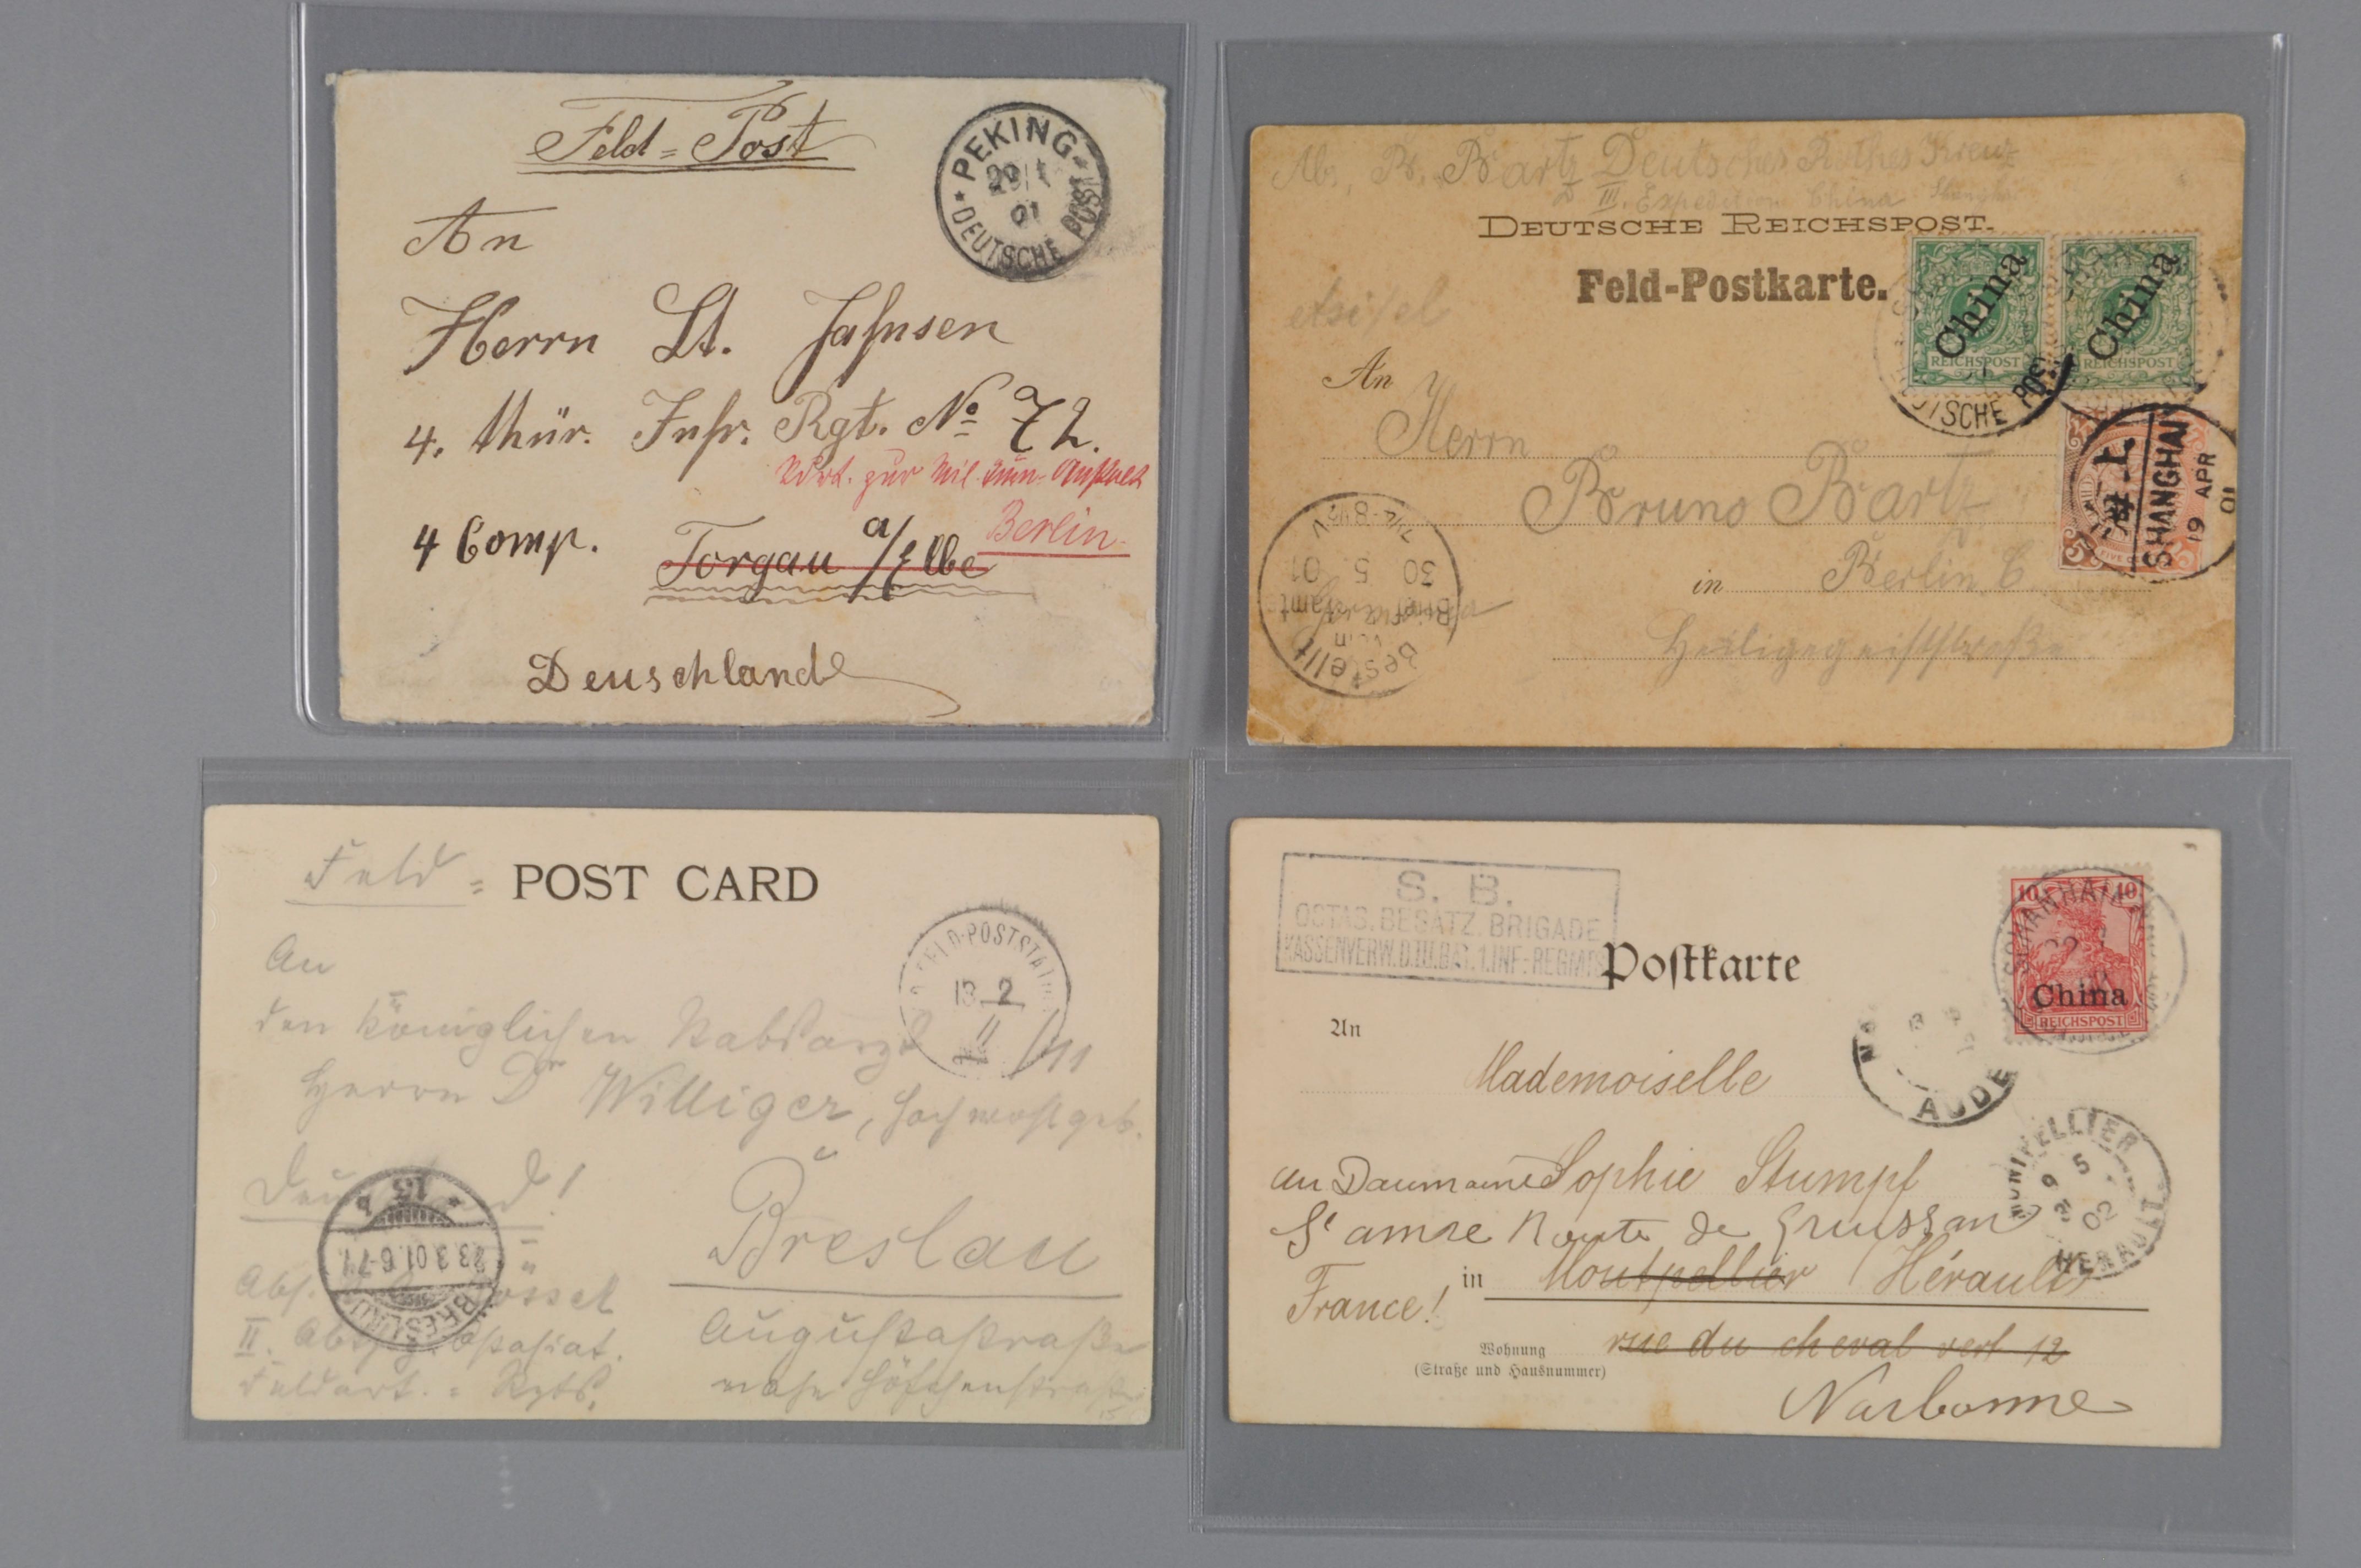 Feld=Post
PEKING
29/1
01
DEUTSCHE POST
An
Herrn Lt. Jahnsen
4. thür. Infr. Rgt. No 72.
zur Mil. Turn-Anstalt
Berlin
4 Comp. Torgau a/Elbe
Deuschland
Abs. Bartz Deutsches Rothes Kreuz
III. Expedition China Shanghai
DEUTSCHE REICHSPOST.
Feld-Postkarte.
China
REICHSPOST
China
REICHSPOST
DEUTSCHE POST
SHANGHAI
19 APR 01
An Herrn
Bruno Bartz
in Berlin C
Heiligegeiststraße
Bestellt
vom
Briefpostamte
30 5 01
Feld = POST CARD
FELD-POSTSTATION
13 2
An
den Königlichen Stabsarzt
Herrn Dr Williger, Hochwohlgeb.
Deutschland!
Breslau
BRESLAU
23.3.01.6-7
Abs.
II. Abthg. Ostasiat.
Feldart. = Rgts.
Augustastraße
nahe Höfchenstraße
S. B.
OSTAS. BESATZ. BRIGADE
KASSENVERW. D. III. BAT. 1. INF.-REGMTS
Postkarte
10 10
China
REICHSPOST
SCHANHAI
An
Mademoiselle
AUDE
MONTPELLIER
5
02
HERAULT
au Sophie Stumpf
Route de Gruissan
in Montpellier Hérault
France!
Wohnung
(Straße und Hausnummer)
rue du cheval vert 12
Narbonne